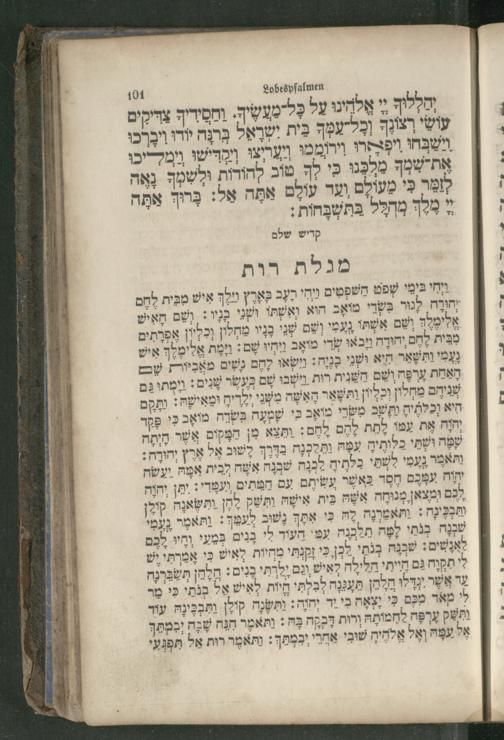 101
Lobespsalmen
יְהַלְלוּךָ יְיָ אֱלֹהֵינוּ עַל כָּל־מַעֲשֶׂיךָ. וַחֲסִידֶיךָ צַדִּיקִים
עוֹשֵׂי רְצוֹנֶךָ וְכָל־עַמְּךָ בֵּית יִשְׂרָאֵל בְּרִנָּה יוֹדוּ וִיבָרְכוּ
וִישַׁבְּחוּ וִיפָאֲרוּ וִירוֹמְמוּ וְיַעֲרִיצוּ וְיַקְדִּישׁוּ וְיַמְלִיכוּ
אֶת־שִׁמְךָ מַלְכֵּנוּ כִּי לְךָ טוֹב לְהוֹדוֹת וּלְשִׁמְךָ נָאֶה
לְזַמֵּר כִּי מֵעוֹלָם וְעַד עוֹלָם אַתָּה אֵל: בָּרוּךְ אַתָּה
יְיָ מֶלֶךְ מְהֻלָּל בַּתִּשְׁבָּחוֹת:
קדיש שלם
מגלת רות
וַיְהִי בִּימֵי שְׁפֹט הַשֹּׁפְטִים וַיְהִי רָעָב בָּאָרֶץ וַיֵּלֶךְ אִישׁ מִבֵּית לֶחֶם
יְהוּדָה לָגוּר בִּשְׂדֵי מוֹאָב הוּא וְאִשְׁתּוֹ וּשְׁנֵי בָנָיו: וְשֵׁם הָאִישׁ
אֱלִימֶלֶךְ וְשֵׁם אִשְׁתּוֹ נָעֳמִי וְשֵׁם שְׁנֵי בָנָיו מַחְלוֹן וְכִלְיוֹן אֶפְרָתִים
מִבֵּית לֶחֶם יְהוּדָה וַיָּבֹאוּ שְׂדֵי מוֹאָב וַיִּהְיוּ שָׁם: וַיָּמָת אֱלִימֶלֶךְ אִישׁ
נָעֳמִי וַתִּשָּׁאֵר הִיא וּשְׁנֵי בָנֶיהָ: וַיִּשְׂאוּ לָהֶם נָשִׁים מֹאֲבִיּוֹת שֵׁם
הָאַחַת עָרְפָּה וְשֵׁם הַשֵּׁנִית רוּת וַיֵּשְׁבוּ שָׁם כְּעֶשֶׂר שָׁנִים: וַיָּמֻתוּ גַם
שְׁנֵיהֶם מַחְלוֹן וְכִלְיוֹן וַתִּשָּׁאֵר הָאִשָּׁה מִשְּׁנֵי יְלָדֶיהָ וּמֵאִישָׁהּ: וַתָּקָם
הִיא וְכַלֹּתֶיהָ וַתָּשָׁב מִשְּׂדֵי מוֹאָב כִּי שָׁמְעָה בִּשְׂדֵה מוֹאָב כִּי פָקַד
יְהוָֹה אֶת עַמּוֹ לָתֵת לָהֶם לָחֶם: וַתֵּצֵא מִן הַמָּקוֹם אֲשֶׁר הָיְתָה
שָׁמָּה וּשְׁתֵּי כַלּוֹתֶיהָ עִמָּהּ וַתֵּלַכְנָה בַדֶּרֶךְ לָשׁוּב אֶל אֶרֶץ יְהוּדָה:
וַתֹּאמֶר נָעֳמִי לִשְׁתֵּי כַלֹּתֶיהָ לֵכְנָה שֹּׁבְנָה אִשָּׁה לְבֵית אִמָּהּ יַעֲשֶׂה
יְהוָֹה עִמָּכֶם חֶסֶד כַּאֲשֶׁר עֲשִׂיתֶם עִם הַמֵּתִים וְעִמָּדִי: יִתֵּן יְהוָֹה
לָכֶם וּמְצֶאןָ מְנוּחָה אִשָּׁה בֵּית אִישָׁהּ וַתִּשַּׁק לָהֶן וַתִּשֶּׂאנָה קוֹלָן
וַתִּבְכֶּינָה: וַתֹּאמַרְנָה לָּהּ כִּי אִתָּךְ נָשׁוּב לְעַמֵּךְ: וַתֹּאמֶר נָעֳמִי
שֹׁבְנָה בְנֹתַי לָמָּה תֵלַכְנָה עִמִּי הַעוֹד לִי בָנִים בְּמֵעַי וְהָיוּ לָכֶם
לַאֲנָשִׁים: שֹׁבְנָה בְנֹתַי לֵכְןָ כִּי זָקַנְתִּי מִהְיוֹת לְאִישׁ כִּי אָמַרְתִּי יֶשׁ
לִי תִקְוָה גַּם הָיִיתִי הַלַּיְלָה לְאִישׁ וְגַם יָלַדְתִּי בָנִים: הֲלָהֵן תְּשַׂבֵּרְנָה
עַד אֲשֶׁר יִגְדָּלוּ הֲלָהֵן תֵּעָגֵנָה לְבִלְתִּי הֱיוֹת לְאִישׁ אַל בְּנֹתַי כִּי מַר
לִי מְאֹד מִכֶּם כִּי יָצְאָה בִי יַד יְהוָֹה: וַתִּשֶּׂנָה קוֹלָן וַתִּבְכֶּינָה עוֹד
וַתִּשַּׁק עָרְפָּה לַחֲמוֹתָהּ וְרוּת דָּבְקָה בָּהּ: וַתֹּאמֶר הִנֵּה שָׁבָה יְבִמְתֵּךְ
אֶל עַמָּהּ וְאֶל אֱלֹהֶיהָ שׁוּבִי אַחֲרֵי יְבִמְתֵּךְ: וַתֹּאמֶר רוּת אַל תִּפְגְּעִי